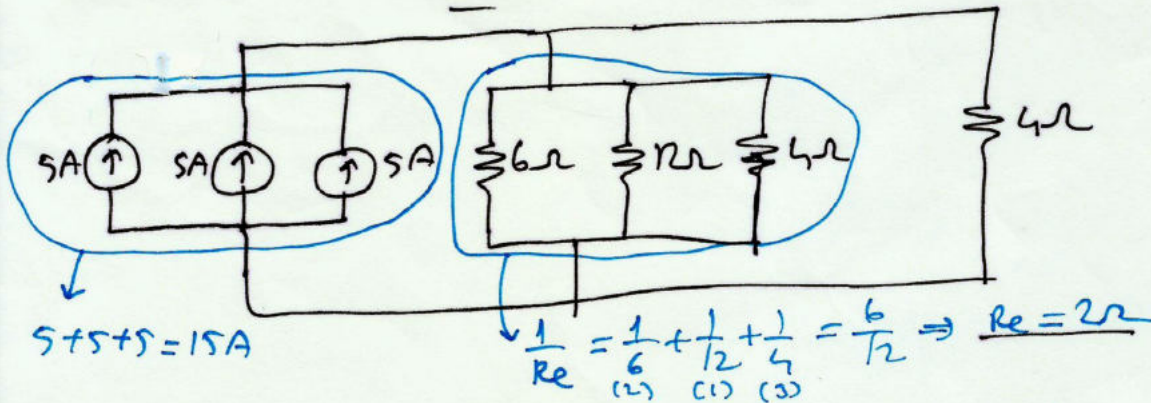 5A 5A 5A 6Ω 12Ω 4Ω 4Ω
5+5+5=15A
1/Re = 1/6 + 1/12 + 1/4 = 6/12 ⇒ Re = 2Ω
(2) (1) (3)